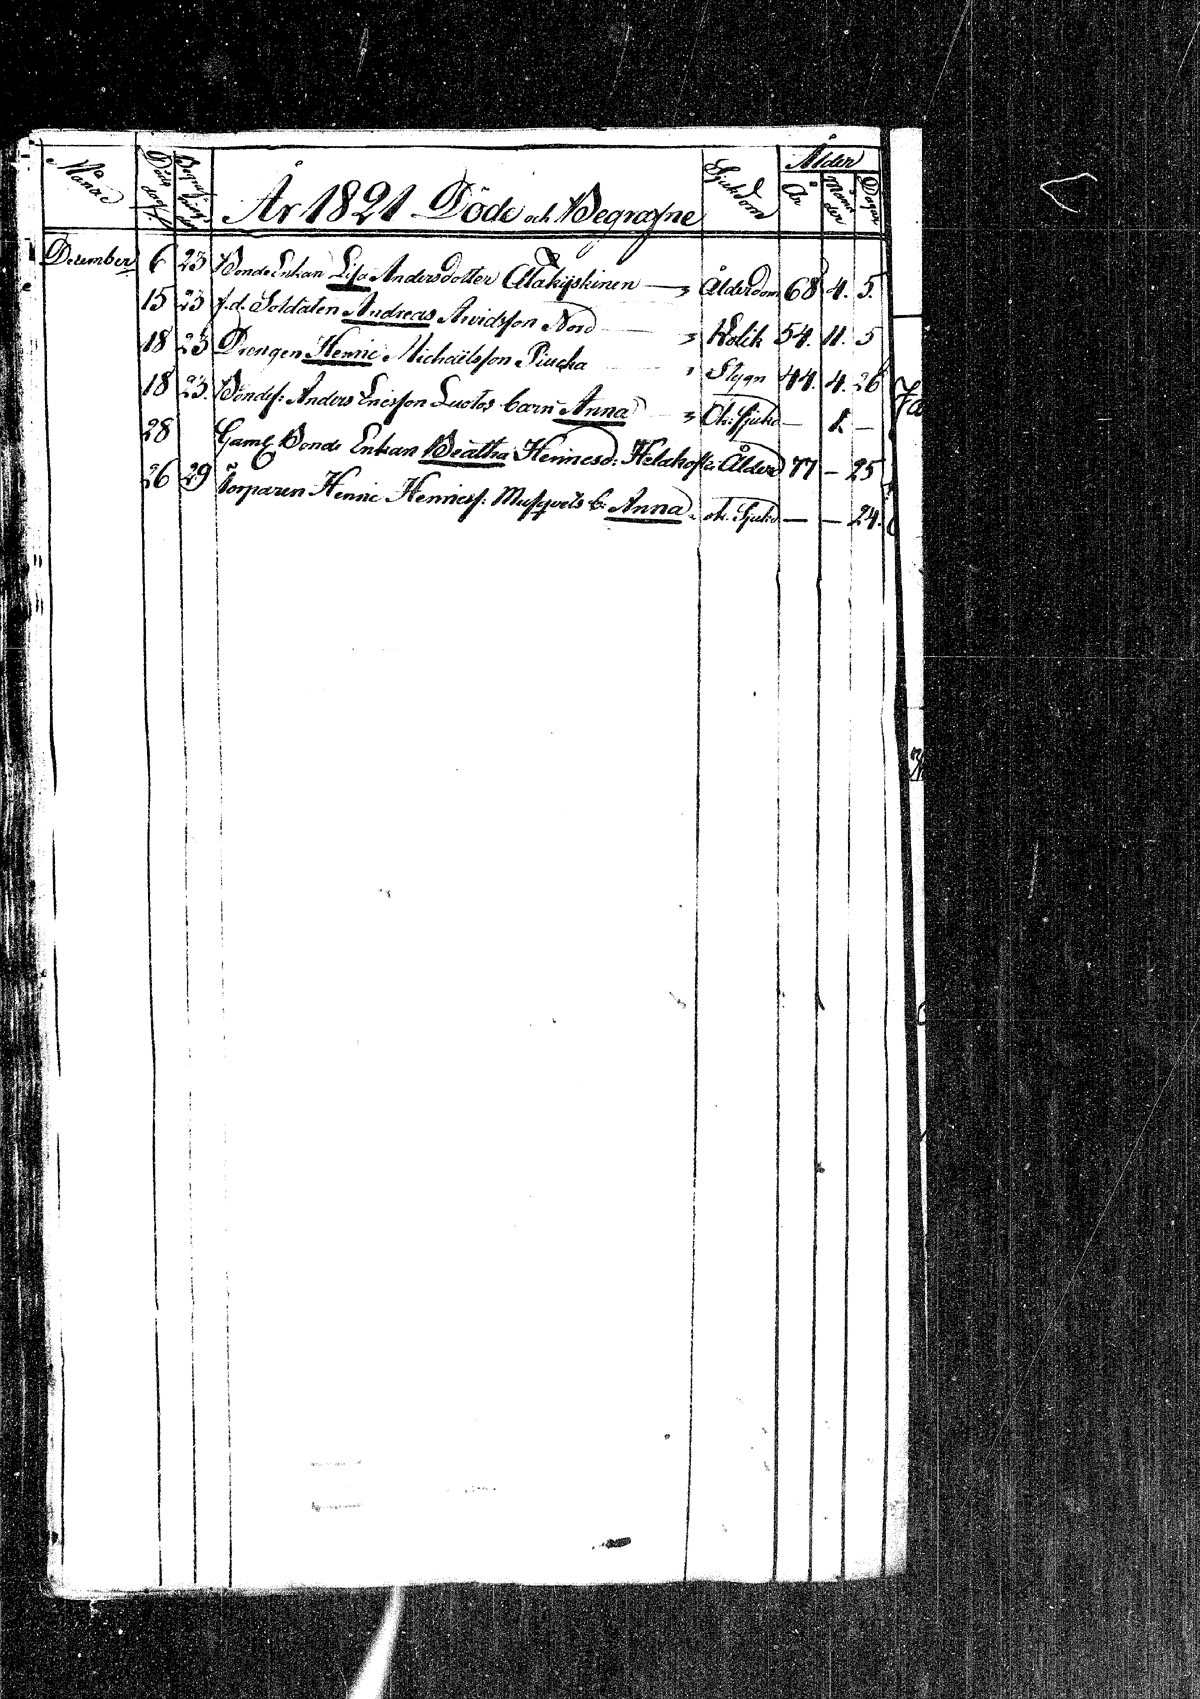 Månad Döds dag Begrafnings dag År 1821 Döde och Begrafne Sjukdom Ålder År Månader Dagar
December 6 23 Bonde Enkan Lisa Andersdotter Alakyskinen Ålderdom 68 4. 5.
15 23 f.d. Soldaten Andreas Arvidsson Nord Kolik 54. 11. 5
18 23 Drengen Henric Michaëlsson Piucha Stygn 44. 4. 26
18 23. Bondes: Anders Ericsson Luotos barn Anna Ok: Sjukd — 1. —
28 Gaml. Bonde Enkan Beatha Henricsd: Ålderd 77 — 25
26 29 Torparen Henric Henricss: b: Anna ok. Sjukd — — 24.